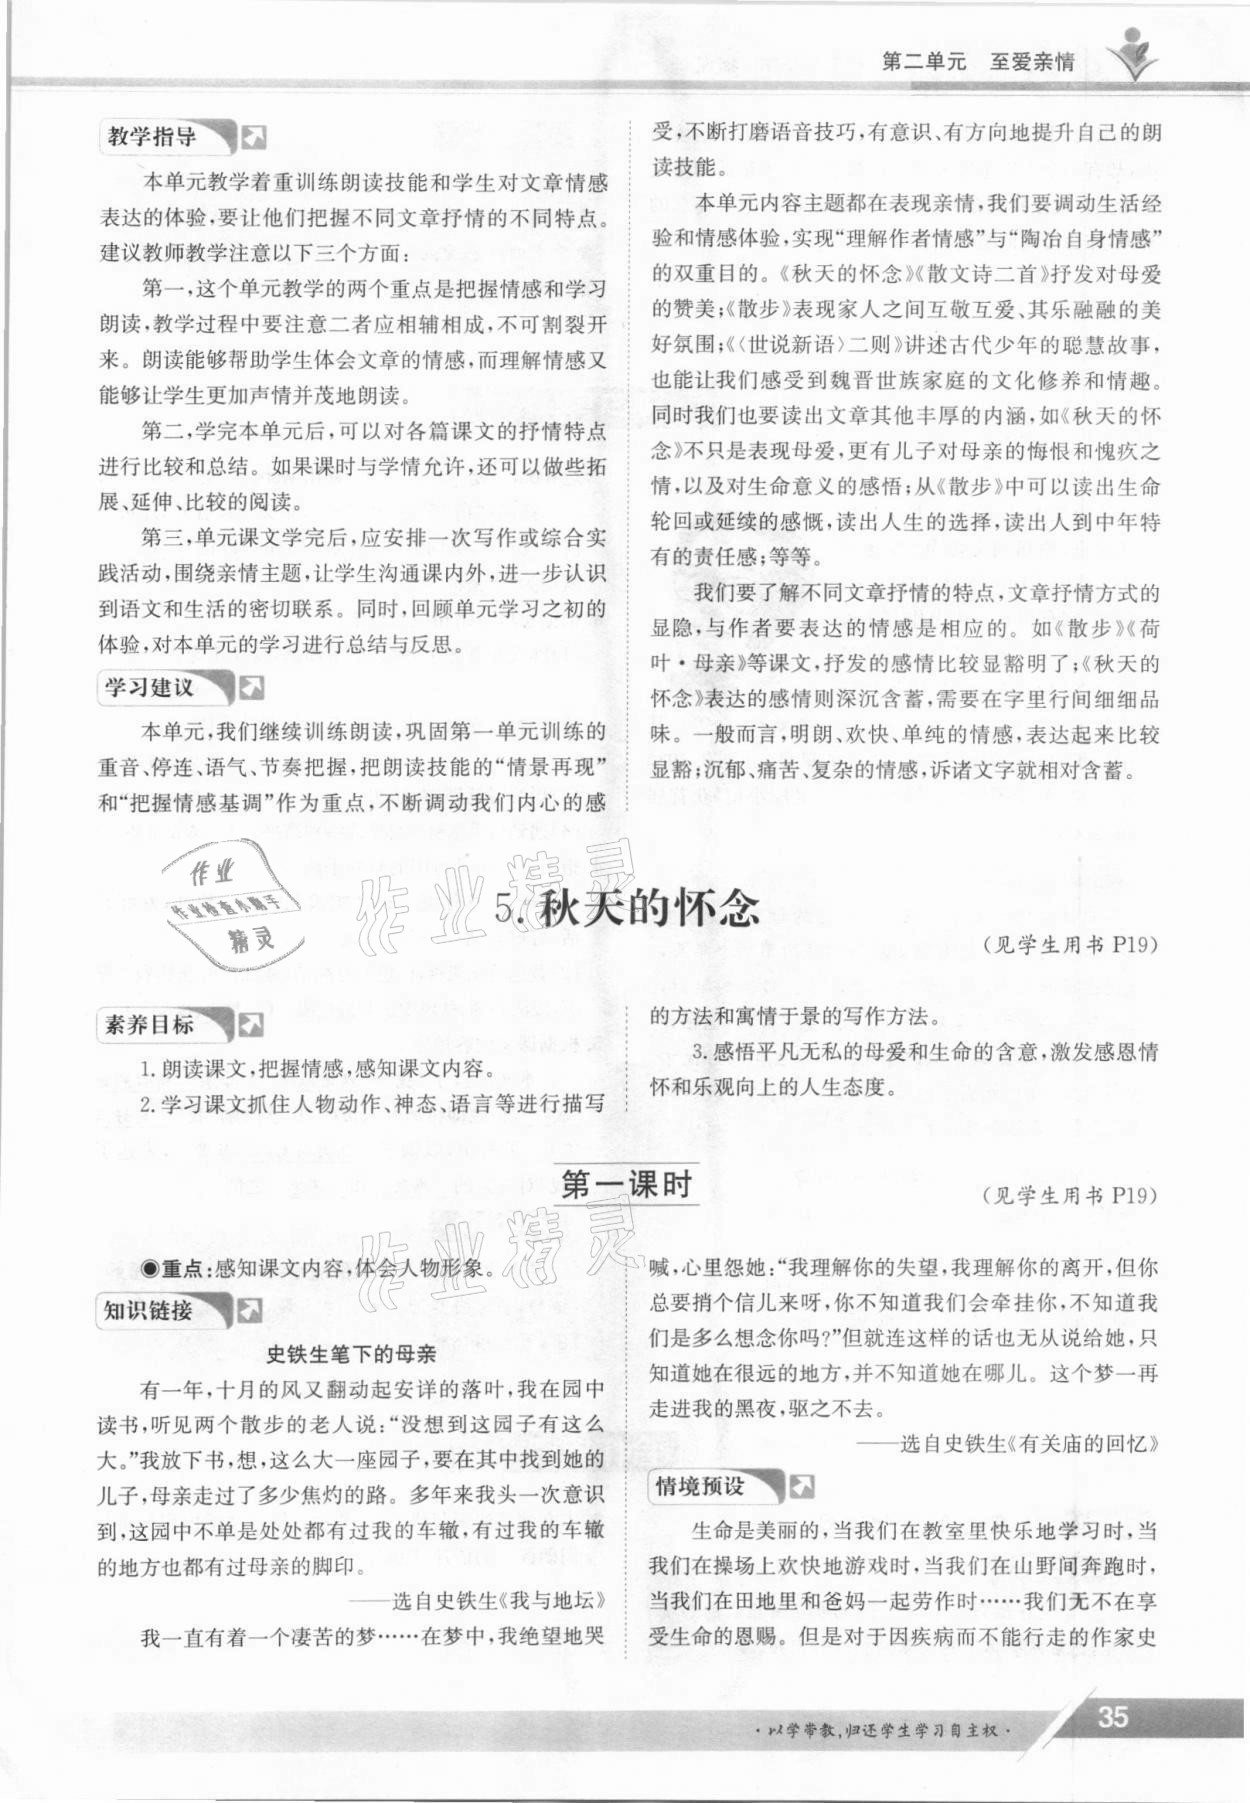 第二单元　至爱亲情
教学指导
本单元教学着重训练朗读技能和学生对文章情感
表达的体验,要让他们把握不同文章抒情的不同特点。
建议教师教学注意以下三个方面:
第一,这个单元教学的两个重点是把握情感和学习
朗读,教学过程中要注意二者应相辅相成,不可割裂开
来。朗读能够帮助学生体会文章的情感,而理解情感又
能够让学生更加声情并茂地朗读。
第二,学完本单元后,可以对各篇课文的抒情特点
进行比较和总结。如果课时与学情允许,还可以做些拓
展、延伸、比较的阅读。
第三,单元课文学完后,应安排一次写作或综合实
践活动,围绕亲情主题,让学生沟通课内外,进一步认识
到语文和生活的密切联系。同时,回顾单元学习之初的
体验,对本单元的学习进行总结与反思。
学习建议
本单元,我们继续训练朗读,巩固第一单元训练的
重音、停连、语气、节奏把握,把朗读技能的“情景再现”
和“把握情感基调”作为重点,不断调动我们内心的感
受,不断打磨语音技巧,有意识、有方向地提升自己的朗
读技能。
本单元内容主题都在表现亲情,我们要调动生活经
验和情感体验,实现“理解作者情感”与“陶冶自身情感”
的双重目的。《秋天的怀念》《散文诗二首》抒发对母爱
的赞美;《散步》表现家人之间互敬互爱、其乐融融的美
好氛围;《〈世说新语〉二则》讲述古代少年的聪慧故事,
也能让我们感受到魏晋世族家庭的文化修养和情趣。
同时我们也要读出文章其他丰厚的内涵,如《秋天的怀
念》不只是表现母爱,更有儿子对母亲的悔恨和愧疚之
情,以及对生命意义的感悟;从《散步》中可以读出生命
轮回或延续的感慨,读出人生的选择,读出人到中年特
有的责任感;等等。
我们要了解不同文章抒情的特点,文章抒情方式的
显隐,与作者要表达的情感是相应的。如《散步》《荷
叶·母亲》等课文,抒发的感情比较显豁明了;《秋天的
怀念》表达的感情则深沉含蓄,需要在字里行间细细品
味。一般而言,明朗、欢快、单纯的情感,表达起来比较
显豁;沉郁、痛苦、复杂的情感,诉诸文字就相对含蓄。
作业
作业检查小助手
精灵
作业精灵
5. 秋天的怀念
(见学生用书 P19)
素养目标
1. 朗读课文,把握情感,感知课文内容。
2. 学习课文抓住人物动作、神态、语言等进行描写
的方法和寓情于景的写作方法。
3. 感悟平凡无私的母爱和生命的含意,激发感恩情
怀和乐观向上的人生态度。
第一课时
(见学生用书 P19)
作业精灵
◉重点:感知课文内容,体会人物形象。
知识链接
史铁生笔下的母亲
有一年,十月的风又翻动起安详的落叶,我在园中
读书,听见两个散步的老人说:“没想到这园子有这么
大。”我放下书,想,这么大一座园子,要在其中找到她的
儿子,母亲走过了多少焦灼的路。多年来我头一次意识
到,这园中不单是处处都有过我的车辙,有过我的车辙
的地方也都有过母亲的脚印。
——选自史铁生《我与地坛》
我一直有着一个凄苦的梦……在梦中,我绝望地哭
喊,心里怨她:“我理解你的失望,我理解你的离开,但你
总要捎个信儿来呀,你不知道我们会牵挂你,不知道我
们是多么想念你吗?”但就连这样的话也无从说给她,只
知道她在很远的地方,并不知道她在哪儿。这个梦一再
走进我的黑夜,驱之不去。
——选自史铁生《有关庙的回忆》
情境预设
生命是美丽的,当我们在教室里快乐地学习时,当
我们在操场上欢快地游戏时,当我们在山野间奔跑时,
当我们在田地里和爸妈一起劳作时……我们无不在享
受生命的恩赐。但是对于因疾病而不能行走的作家史
·以学带教,归还学生学习自主权·
35